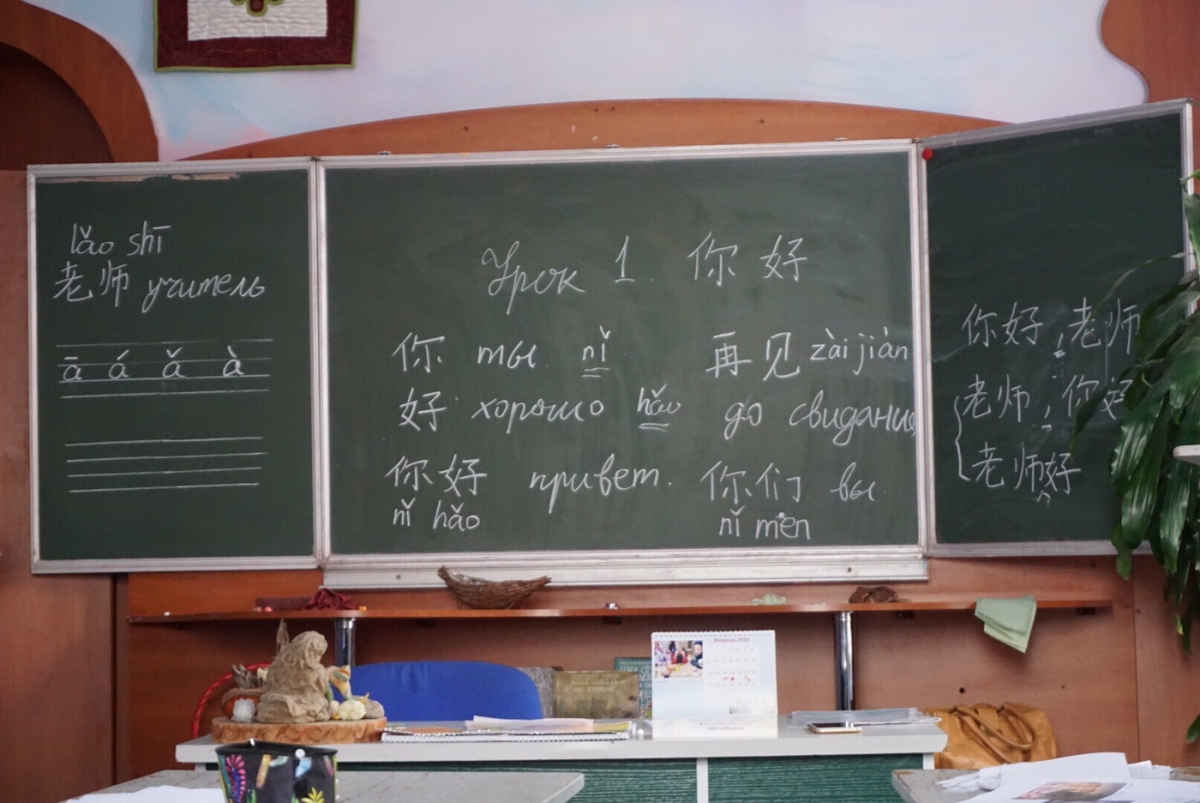 lǎo shī
老师 учитель
ā á ǎ à
Урок 1. 你好
你 ты nǐ
好 хорошо hǎo
你好 привет.
nǐ hǎo
再见 zài jiàn
до свидания
你们 вы
nǐ men
你好,老师
老师,你好
老师好
Февраль